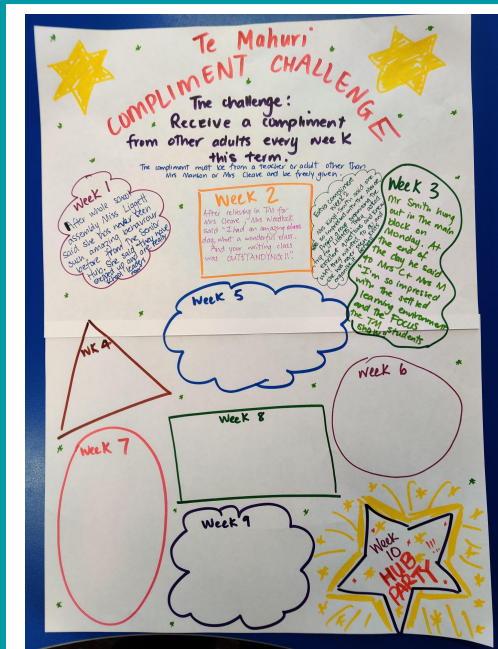 Te Mahuri
COMPLIMENT CHALLENGE
The challenge:
Receive a compliment
from other adults every week
this term.
The compliment must be from a teacher or adult other than
Mrs Manson or Mrs Cleave and be freely given
Week 1
After whole school
assembly Miss Liggett
said she has never seen
such amazing behaviour
before from the Senior
Hub. She said they have
stepped up and are already
school leaders.
Week 2
After relieving in TM for
Mrs Cleave, Mrs
said "I had an amazing class
day, what a wonderful class.
And your writing class
was OUTSTANDING!!".
Extra compliment
Week 3
Mr Smith hung
out in the main
block on
Monday. At
the end of
the day he said
to Mrs C + Mrs M
I'm so impressed
with the settled
learning environment
and the FOCUS
the TM students
show
WK 4
Week 5
Week 6
Week 7
Week 8
Week 9
Week
10
HUB
PARTY
!!!